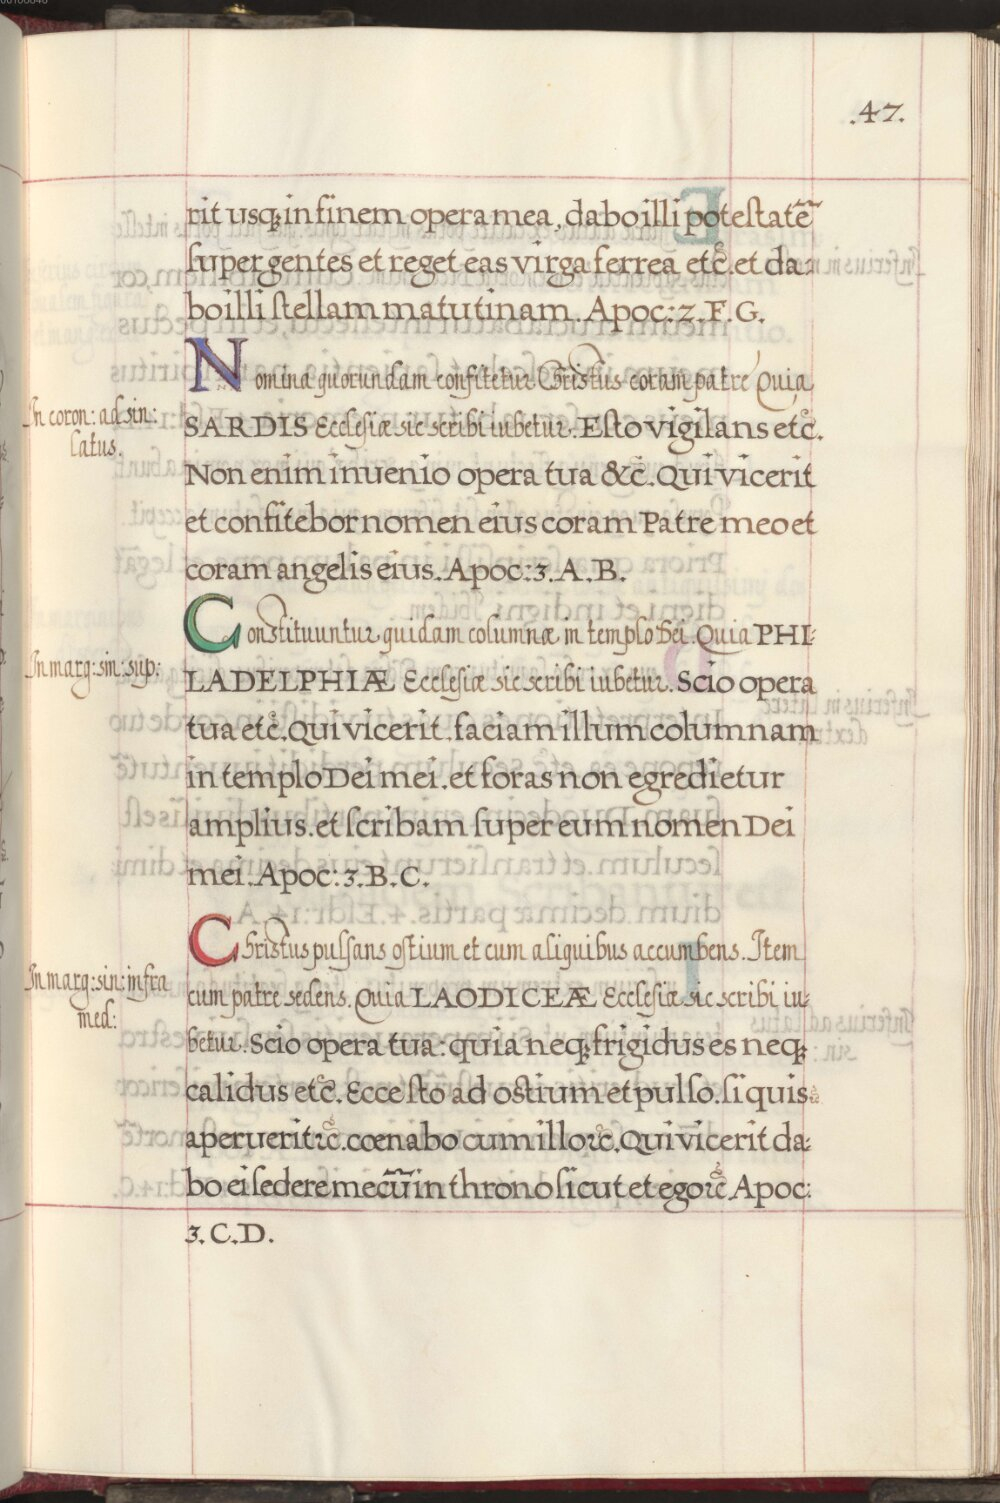 .47.
rit usq; in finem opera mea, dabo illi potestatē
super gentes et reget eas virga ferrea etc̊. et da:
bo illi stellam matutinam. Apoc: 2. F. G.
Nomina quorundam confitetur Christus coram patre Quia
In coron: ad sin:
latus.
SARDIS Ecclesiæ sic scribi iubetur. Esto vigilans etc̊.
Non enim inuenio opera tua &c̊. Qui vicerit
et confitebor nomen eius coram Patre meo et
coram angelis eius. Apoc: 3. A. B.
Constituuntur quidam columnæ in templo Dei. Quia PHI:
In marg: sin: sup:
LADELPHIÆ Ecclesiæ sic scribi iubetur. Scio opera
tua etc̊. Qui vicerit faciam illum columnam
in templo Dei mei. et foras non egredietur
amplius. et scribam super eum nomen Dei
mei. Apoc: 3. B. C.
Christus pulsans ostium et cum aliquibus accumbens. Item
In marg: sin: infra
med:
cum patre sedens. Quia LAODICEÆ Ecclesiæ sic scribi iu:
betur. Scio opera tua: quia neq; frigidus es neq;
calidus etc̊. Ecce sto ad ostium et pulso. si quis
aperuerit ꝛc̊. cœnabo cum illo ꝛc̊. Qui vicerit da:
bo ei sedere mecū in throno sicut et ego ꝛc̊ Apoc:
3. C. D.